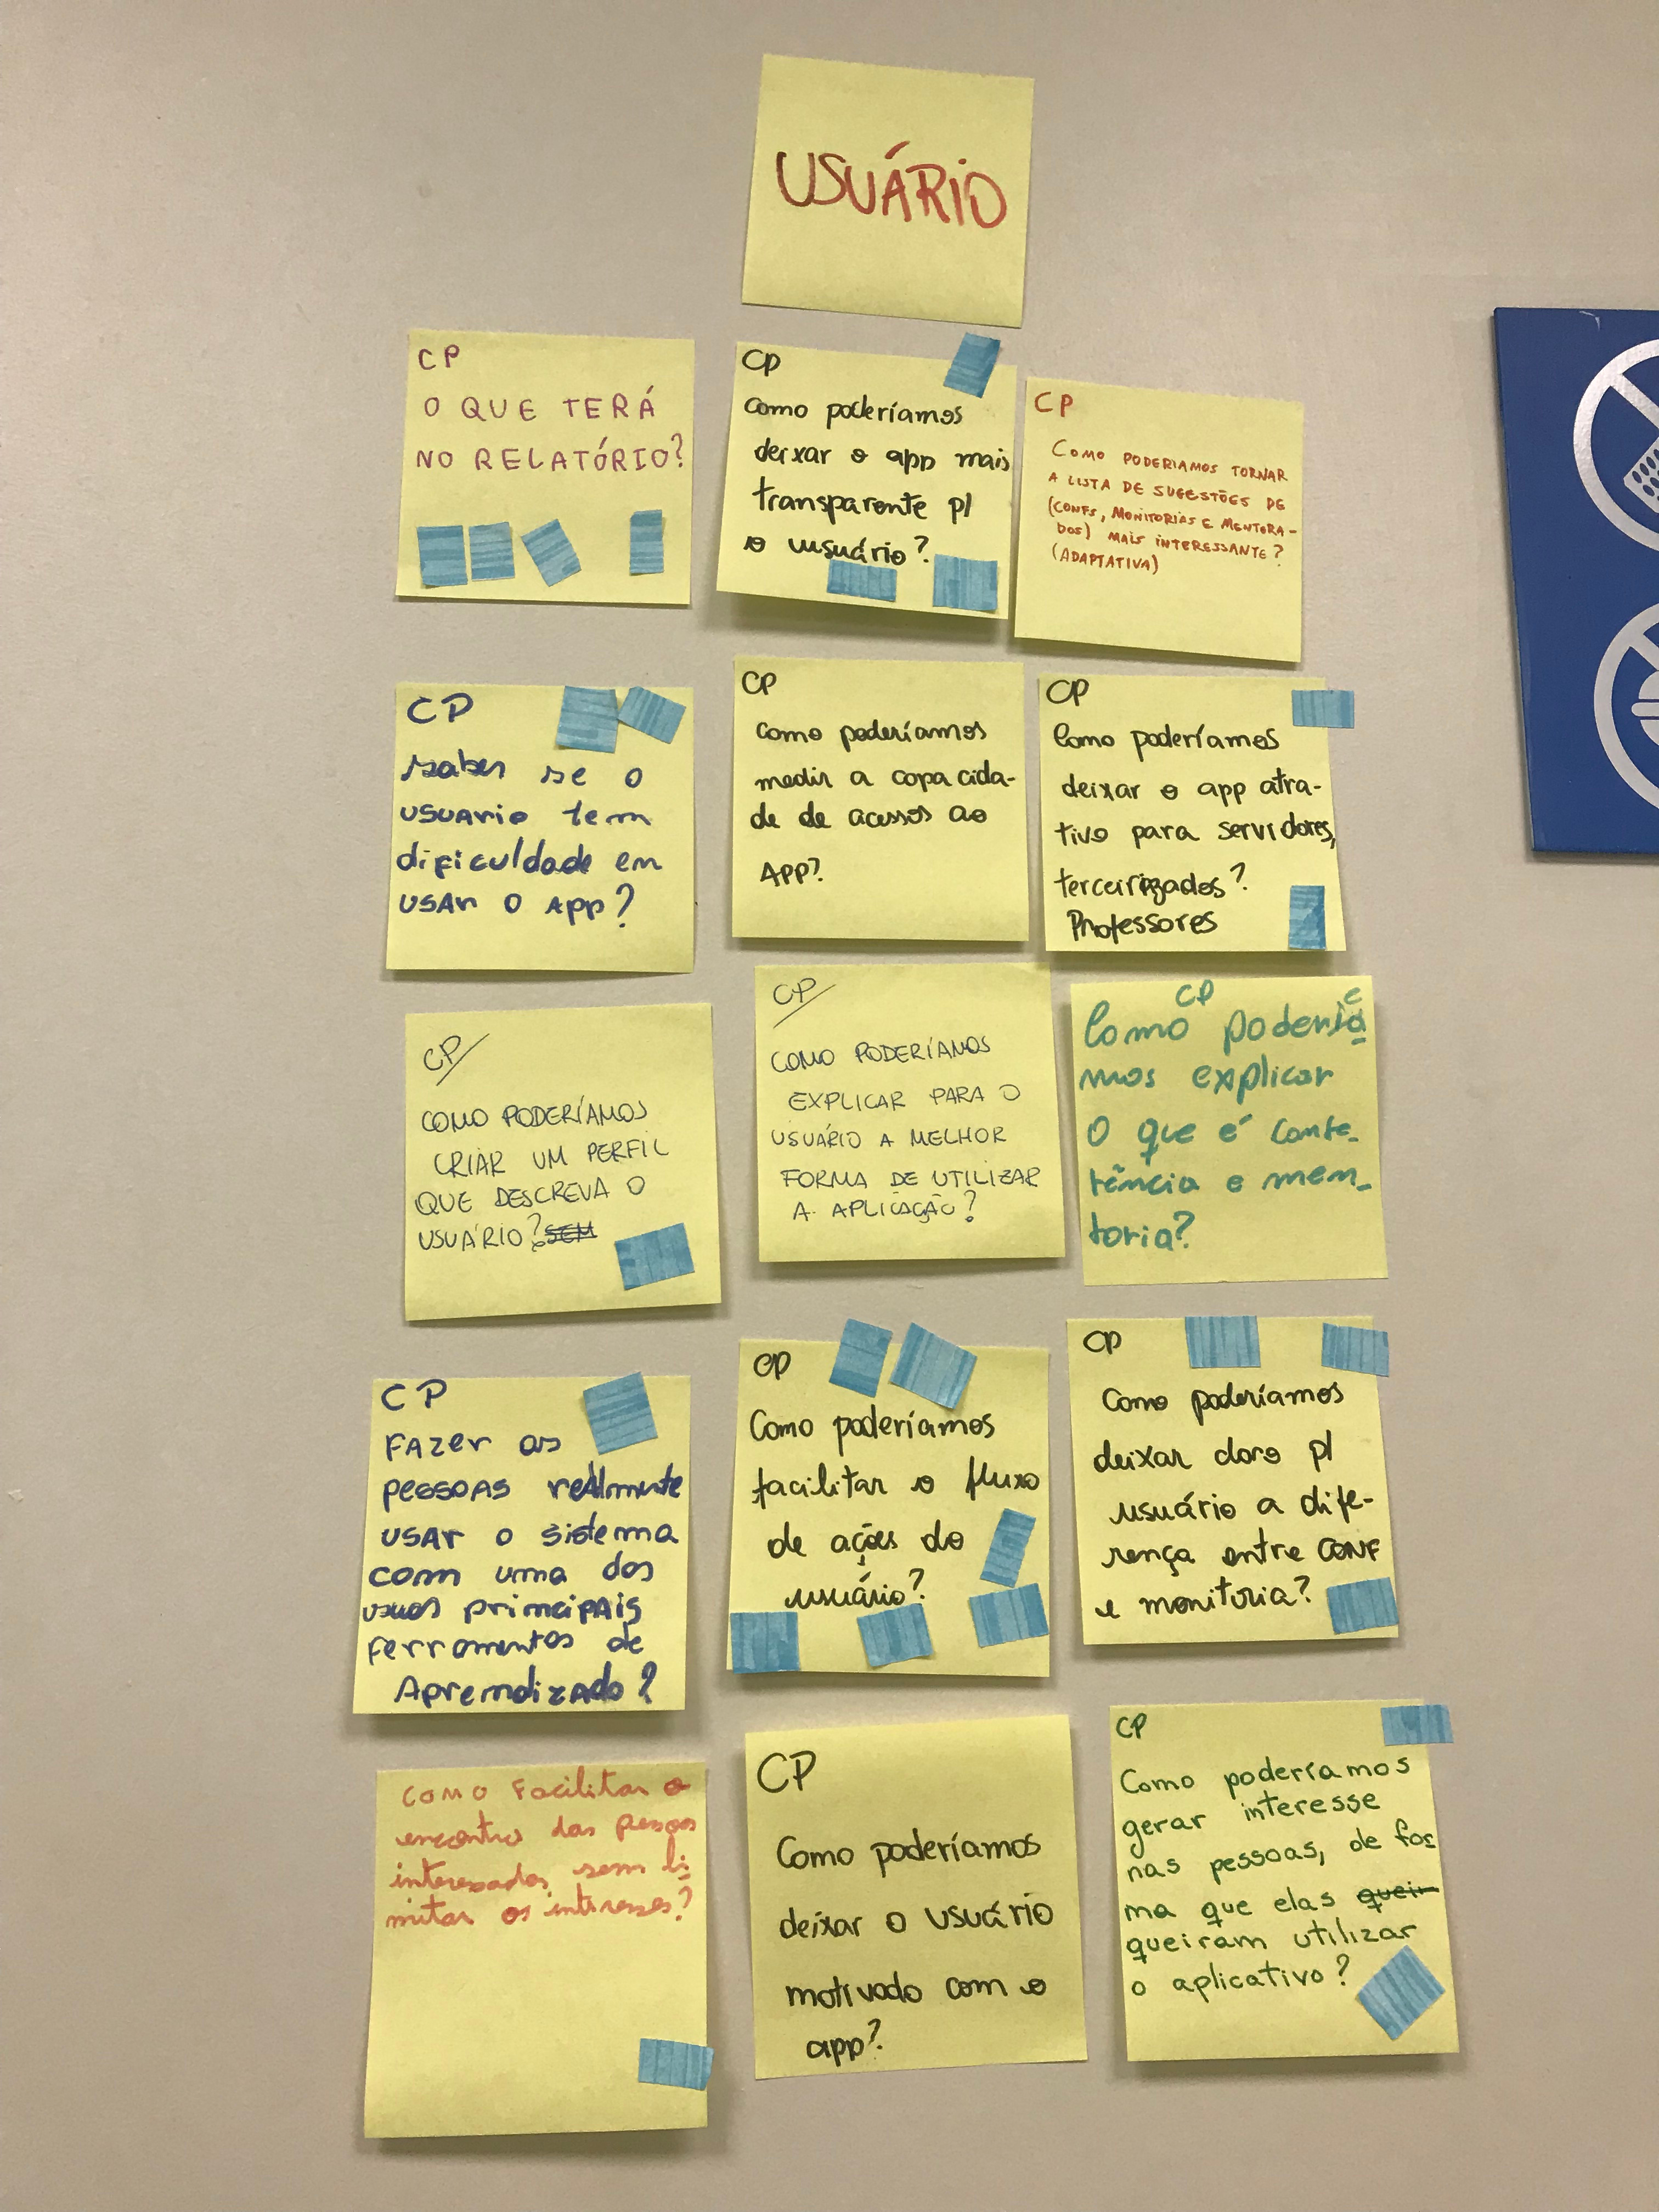 USUÁRIO
CP
O QUE TERÁ
NO RELATÓRIO?
CP
Como poderíamos
deixar o app mais
transparente p/
o usuário?
CP
COMO PODERIAMOS TORNAR
A LISTA DE SUGESTÕES DE
(CONFS, MONITORIAS E MENTORA-
DOS) MAIS INTERESSANTE?
(ADAPTATIVA)
CP
saber se o
usuario tem
dificuldade em
usar o App?
CP
Como poderíamos
medir a capacida-
de de acessos ao
APP?
CP
Como poderíamos
deixar o app atra-
tivo para servidores,
terceirizados?
Professores
CP
COMO PODERÍAMOS
CRIAR UM PERFIL
QUE DESCREVA O
USUÁRIO? SEM
CP
COMO PODERÍAMOS
EXPLICAR PARA O
USUÁRIO A MELHOR
FORMA DE UTILIZAR
A APLICAÇÃO?
CP
Como poderia
mos explicar
o que é
e men-
toria?
CP
Fazer as
pessoas realmente
usar o sistema
com uma das
principais
ferramentas de
Aprendizado?
CP
Como poderíamos
facilitar o fluxo
de ações do
usuário?
CP
Como poderíamos
deixar claro p/
usuário a dife-
rença entre CONF
e monitoria?
Como facilitar o
encontro das pessoas
interessadas sem li
mitar os interesses?
CP
Como poderíamos
deixar o usuário
motivado com o
app?
CP
Como poderíamos
gerar interesse
nas pessoas, de for
ma que elas queir
queiram utilizar
o aplicativo?